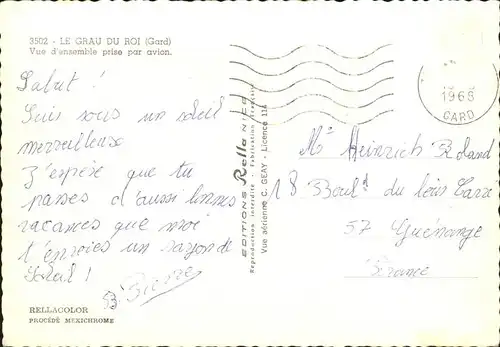 3502 - LE GRAU DU ROI (Gard)
Vue d'ensemble prise par avion.
Salut !
Suis sous un soleil
merveilleux
J'espère que tu
passes d'aussi bonnes
vacances que moi
t'envoies un rayon de
soleil !
Pierre
RELLACOLOR
PROCÉDÉ MEXICHROME
EDITIONS Rella NICE
Reproduction interdite - Fabrication Française
Vue aérienne C. GEAY - Licence 114
1968
GARD
Mr Heinrich Roland
18 Boul d du
57 Guénange
France